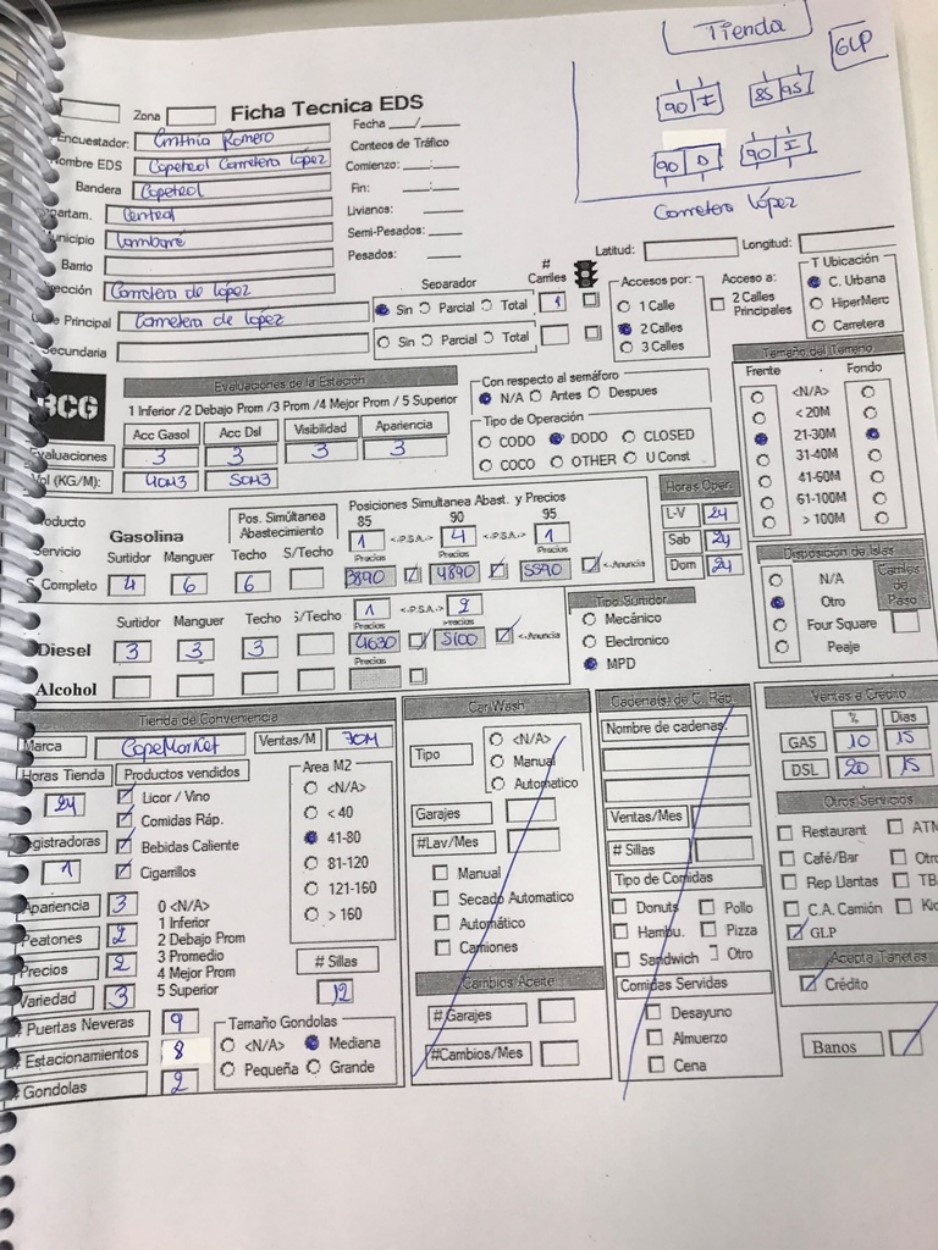 Tienda
GLP
90 I
85 95
90 D
90 I
Carretera López
Zona
Ficha Tecnica EDS
Encuestador: Cinthia Romero
Nombre EDS Copetrol Carretera López
Bandera Copetrol
partam. Central
unicipio Lambaré
Barrio
ección Carretera de lopez
e Principal Carretera de lopez
Secundaria
Fecha ___/___
Conteos de Tráfico
Comienzo: ___:___
Fin: ___:___
Livianos: ____
Semi-Pesados: ____
Pesados: ____
Latitud:
Longitud:
Separador
# Carriles
Sin Parcial Total 1
Sin Parcial Total
Accesos por:
1 Calle
2 Calles
3 Calles
Acceso a:
2 Calles Principales
T Ubicación
C. Urbana
HiperMerc
Carretera
BCG
Evaluaciones de la Estación
1 Inferior /2 Debajo Prom /3 Prom /4 Mejor Prom / 5 Superior
Acc Gasol Acc Dsl Visibilidad Apariencia
valuaciones 3 3 3 3
Vol (KG/M): 40M3 50M3
Con respecto al semáforo
N/A Antes Despues
Tipo de Operación
CODO DODO CLOSED
COCO OTHER U Const
Tamaño del Terreno
Frente Fondo
<N/A>
< 20M
21-30M
31-40M
41-60M
61-100M
> 100M
Horas Oper.
L-V 24
Sab 24
Dom 24
oducto
Servicio
Completo
Gasolina
Pos. Simúltanea Abastecimiento
Surtidor Manguer Techo S/Techo
4 6 6
Posiciones Simultanea Abast. y Precios
85 90 95
1 <-P.S.A.-> 4 <-P.S.A.-> 1
Precios Precios Precios
3890 4890 5590 <-Anuncia
Diesel
Surtidor Manguer Techo S/Techo
3 3 3
1 <-P.S.A.-> 2
Precios Precios
4630 5100 <-Anuncia
Precios
Alcohol
Tipo Surtidor
Mecánico
Electronico
MPD
Disposición de Islas
N/A
Otro
Four Square
Peaje
Carriles de Paso
Tienda de Conveniencia
Marca CopeMarket Ventas/M 70M
Horas Tienda
24
egistradoras
1
Productos vendidos
Licor / Vino
Comidas Ráp.
Bebidas Caliente
Cigarrillos
Area M2
<N/A>
< 40
41-80
81-120
121-160
> 160
Apariencia 3
Peatones 2
Precios 2
Variedad 3
0 <N/A>
1 Inferior
2 Debajo Prom
3 Promedio
4 Mejor Prom
5 Superior
# Sillas
12
# Puertas Neveras 9
# Estacionamientos 8
# Gondolas 2
Tamaño Gondolas
<N/A> Mediana
Pequeña Grande
Car Wash
Tipo
<N/A>
Manual
Automatico
Garajes
#Lav/Mes
Manual
Secado Automatico
Automático
Camiones
Cambios Aceite
# Garajes
#Cambios/Mes
Cadena(s) de C. Ráp.
Nombre de cadenas.
Ventas/Mes
# Sillas
Tipo de Comidas
Donuts Pollo
Hambu. Pizza
Sandwich Otro
Comidas Servidas
Desayuno
Almuerzo
Cena
Ventas a Crédito
% Dias
GAS 10 15
DSL 20 15
Otros Servicios
Restaurant ATM
Café/Bar Otro
Rep Llantas TB
C.A. Camión Kio
GLP
Acepta Tarjetas
Crédito
Banos